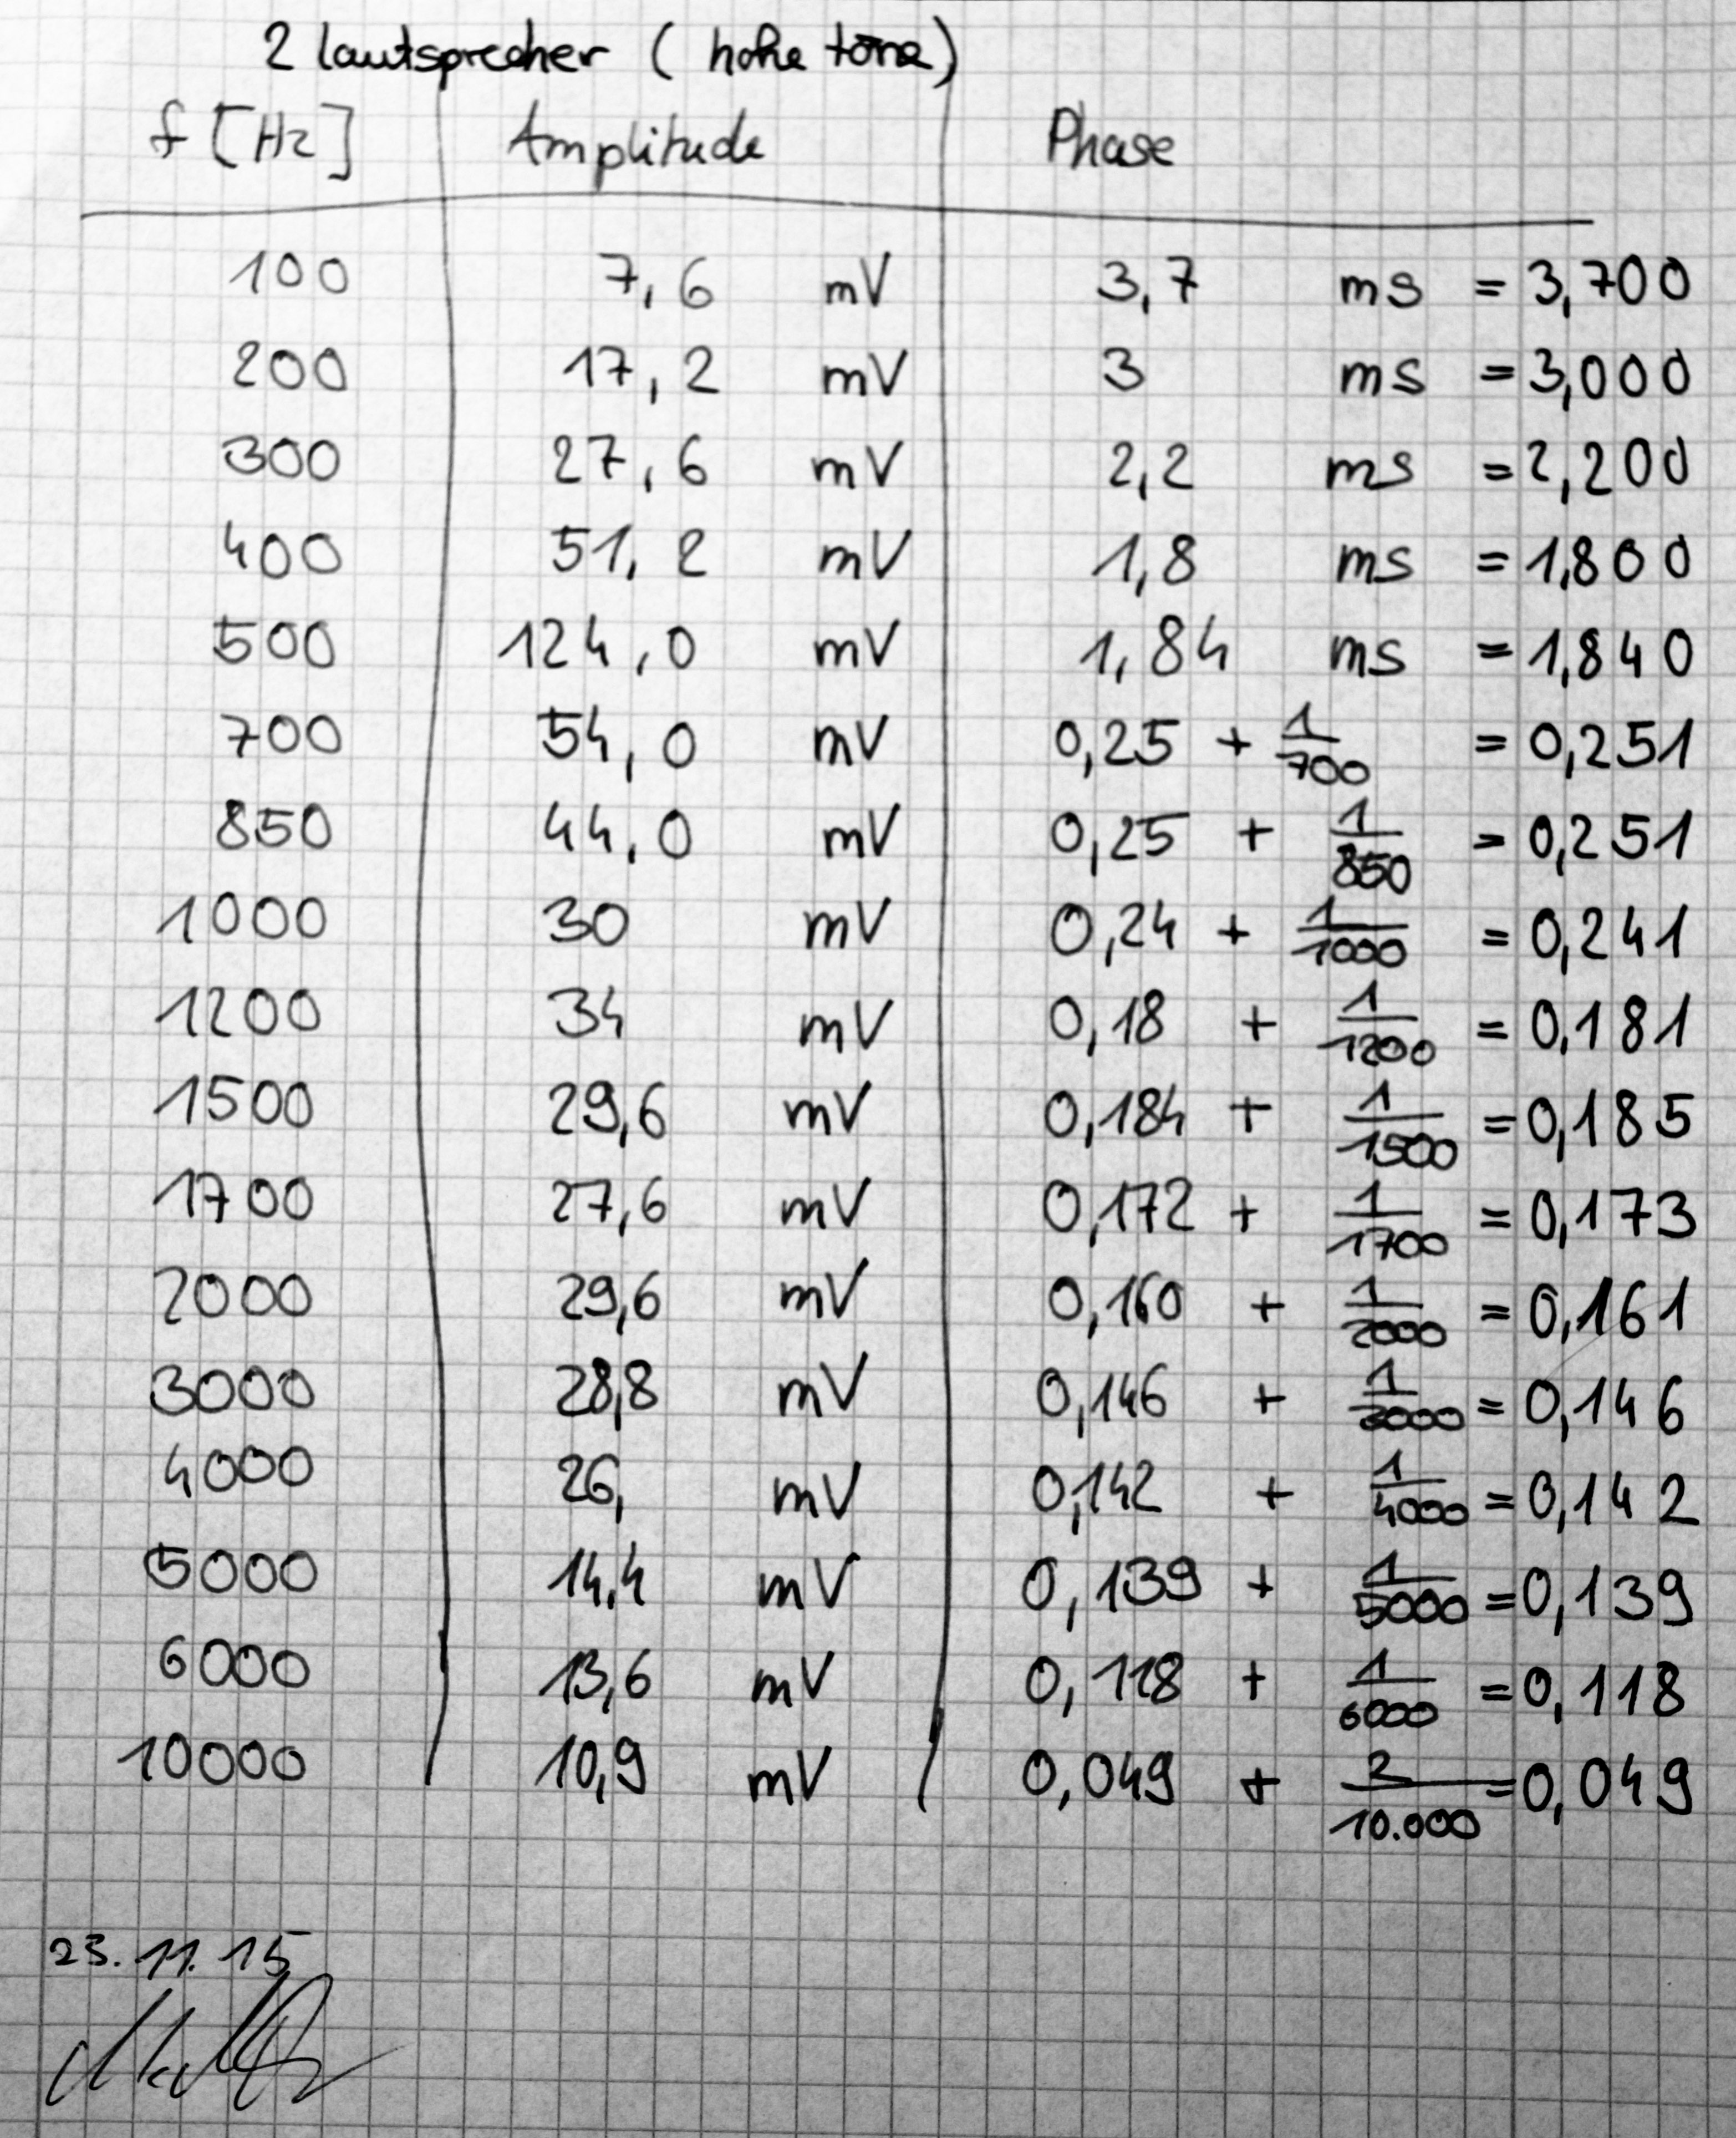 2 lautsprecher (hohe töne)
f [Hz] Amplitude Phase
100 7,6 mV 3,7 ms = 3,700
200 17,2 mV 3 ms = 3,000
300 27,6 mV 2,2 ms = 2,200
400 51,2 mV 1,8 ms = 1,800
500 124,0 mV 1,84 ms = 1,840
700 54,0 mV 0,25 + 1/700 = 0,251
850 44,0 mV 0,25 + 1/850 = 0,251
1000 30 mV 0,24 + 1/1000 = 0,241
1200 34 mV 0,18 + 1/1200 = 0,181
1500 29,6 mV 0,184 + 1/1500 = 0,185
1700 27,6 mV 0,172 + 1/1700 = 0,173
2000 29,6 mV 0,160 + 1/2000 = 0,161
3000 28,8 mV 0,146 + 1/3000 = 0,146
4000 26, mV 0,142 + 1/4000 = 0,142
5000 14,4 mV 0,139 + 1/5000 = 0,139
6000 13,6 mV 0,118 + 1/6000 = 0,118
10000 10,9 mV 0,049 + 2/10.000 = 0,049
23.11.15